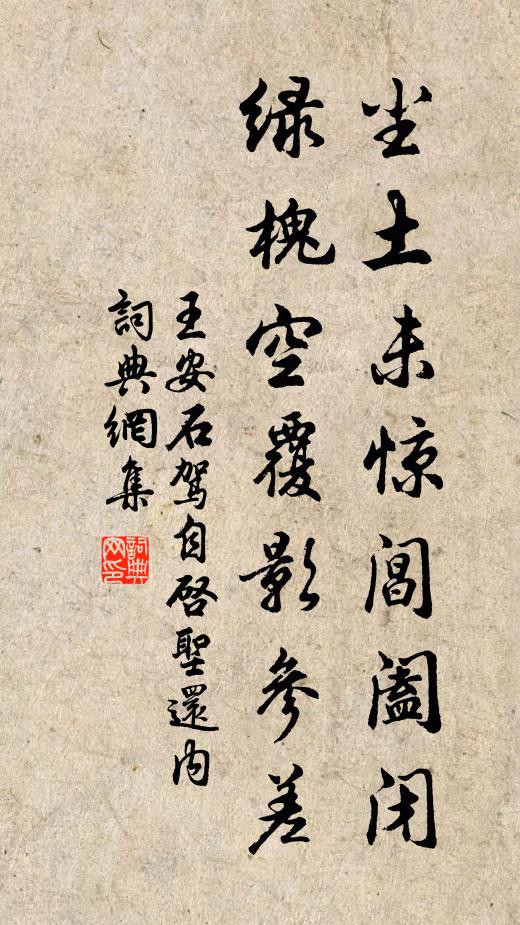 尘土未惊阊阖闭
绿槐空覆影参差
王安石驾自启聖還内
詞典網集
詞典
网印